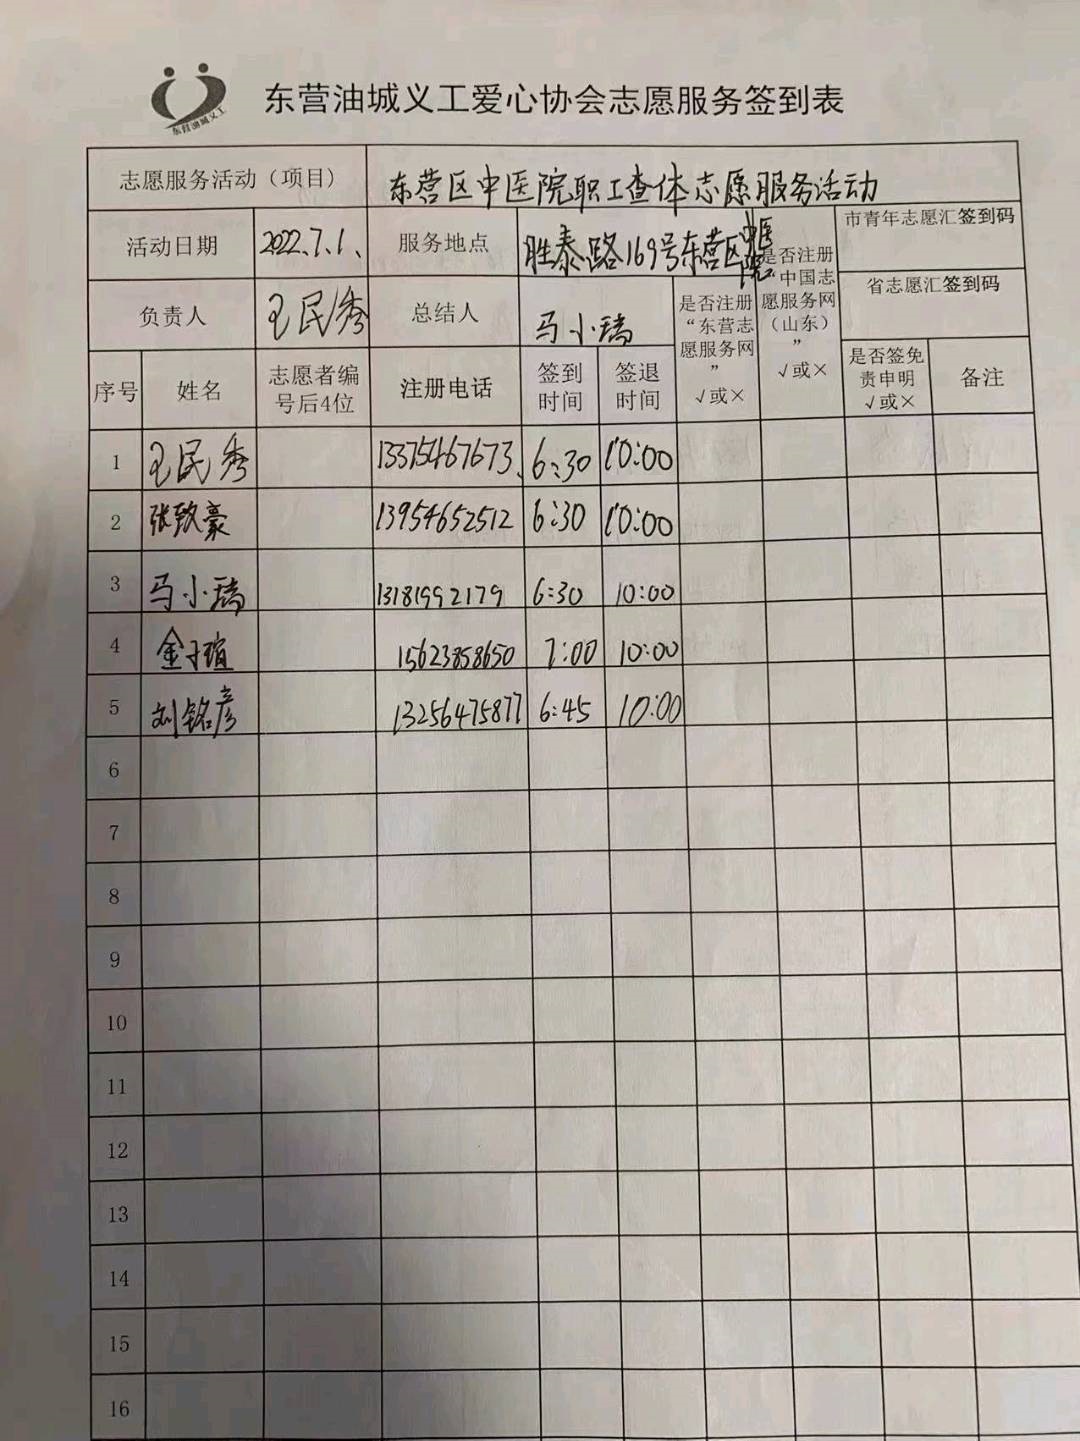 东营油城义工
东营油城义工爱心协会志愿服务签到表
志愿服务活动（项目） 东营区中医院职工查体志愿服务活动
活动日期 2022.7.1、 服务地点 胜泰路169号东营区中医院
市青年志愿汇签到码
省志愿汇签到码
负责人 王民秀 总结人 马小瑞
是否注册
“东营志
愿服务网
”
√或×
是否注册
“中国志
愿服务网
（山东）
”
√或×
序号 姓名
志愿者编
号后4位
注册电话
签到
时间
签退
时间
是否签免
责申明
√或×
备注
1 王民秀 13375467673、 6:30 10:00
2 张致豪 13954652512 6:30 10:00
3 马小瑞 13181992179 6:30 10:00
4 金子瑄 15623858650 7:00 10:00
5 刘铭彦 13256475877 6:45 10:00
6
7
8
9
10
11
12
13
14
15
16